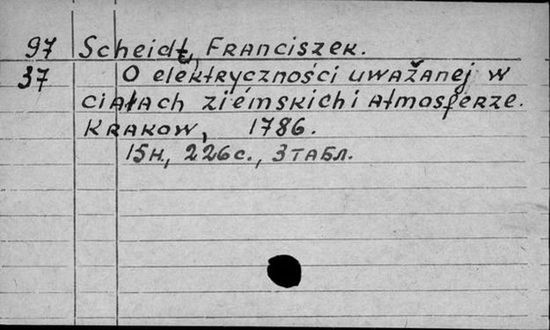 97 Scheidt, Franciszek.
37 O elektryczności uważanej w
ciałach ziémskich i atmosferze.
Krakow, 1786.
15н., 226с., 3 табл.